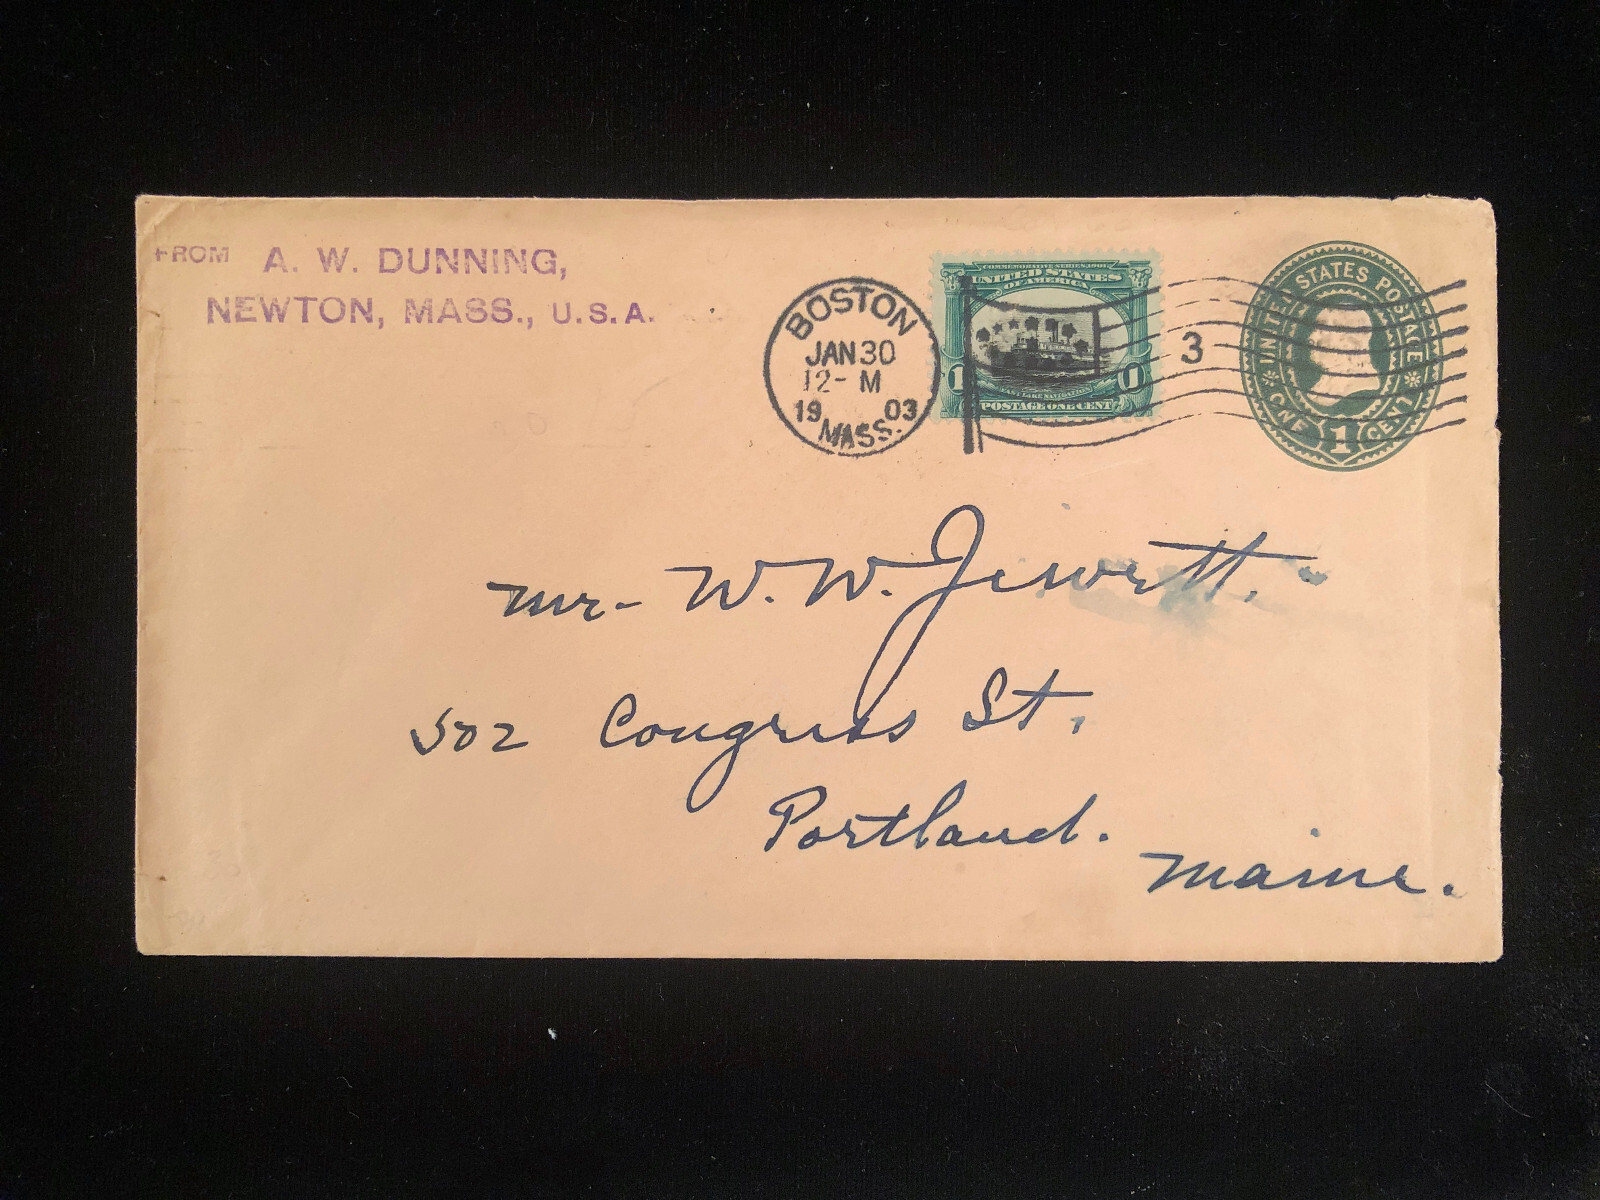 FROM A. W. DUNNING,
NEWTON, MASS., U.S.A.
BOSTON
JAN 30
12- M
19 03
MASS.
COMMEMORATIVE SERIES, 1901
UNITED STATES
OF AMERICA
1 1
POSTAGE ONE CENT
3
UNITED STATES POSTAGE
ONE 1 CENT
Mr- W. W. Jewett.
502 Congress St.
Portland.
Maine.